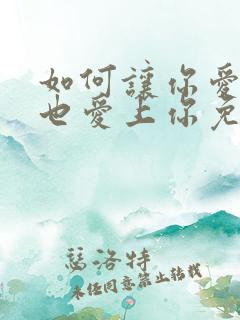 如何讓你愛
也愛上你免
瑟洛特
未经同意禁止转载